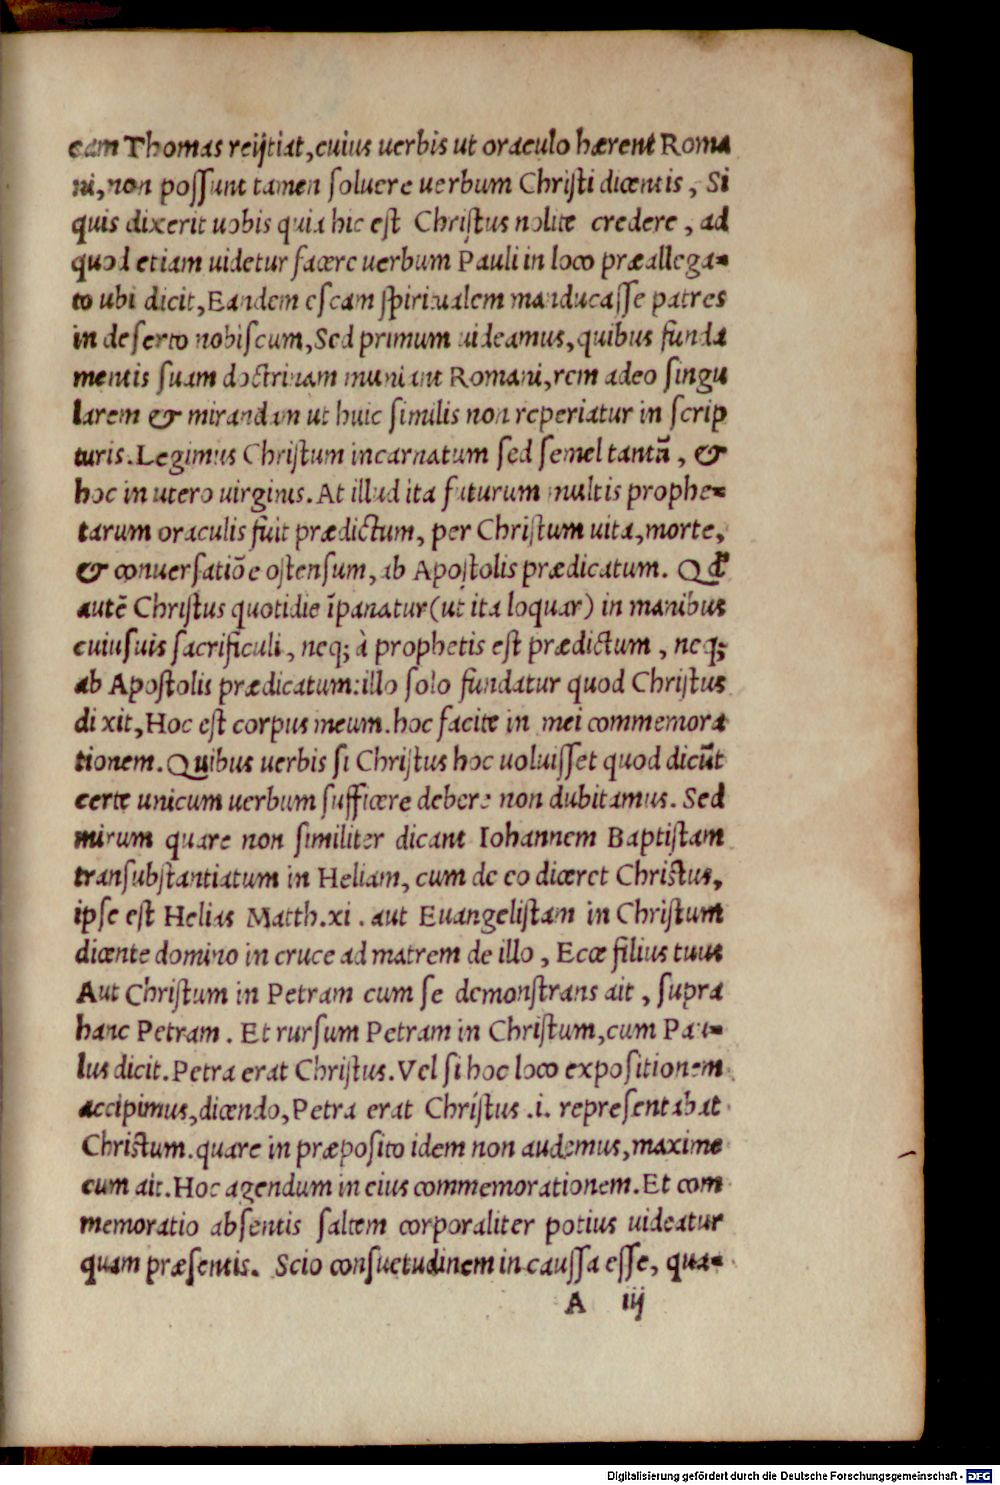 eam Thomas reijtiat, cuius uerbis ut oraculo hærent Roma
ni, non possunt tamen soluere uerbum Christi dicentis, Si
quis dixerit uobis quia hic est Christus nolite credere, ad
quod etiam uidetur facere uerbum Pauli in loco præallega-
to ubi dicit, Eandem escam spiritualem manducasse patres
in deserto nobiscum, Sed primum uideamus, quibus funda
mentis suam doctrinam muniant Romani, rem adeo singu
larem & mirandam ut huic similis non reperiatur in scrip
turis. Legimus Christum incarnatum sed semel tantū, &
hoc in utero uirginis. At illud ita futurum multis prophe-
tarum oraculis fuit prædictum, per Christum uita, morte,
& conuersatiōe ostensum, ab Apostolis prædicatum. Qđ
autē Christus quotidie īpanatur (ut ita loquar) in manibus
cuiusuis sacrificuli, neq; à prophetis est prædictum, neq;
ab Apostolis prædicatum: illo solo fundatur quod Christus
dixit, Hoc est corpus meum. hoc facite in mei commemora
tionem. Quibus uerbis si Christus hoc uoluisset quod dicūt
certe unicum uerbum sufficere debere non dubitamus. Sed
mirum quare non similiter dicant Iohannem Baptistam
transubstantiatum in Heliam, cum de eo diceret Christus,
ipse est Helias Matth. xi. aut Euangelistam in Christum
dicente domino in cruce ad matrem de illo, Ecce filius tuus
Aut Christum in Petram cum se demonstrans ait, supra
hanc Petram. Et rursum Petram in Christum, cum Pau-
lus dicit. Petra erat Christus. Vel si hoc loco expositionem
accipimus, dicendo, Petra erat Christus .i. representabat
Christum. quare in præposito idem non audemus, maxime
cum ait. Hoc agendum in eius commemorationem. Et com
memoratio absentis saltem corporaliter potius uideatur
quam præsentis. Scio consuetudinem in caussa esse, qua-
A iij
Digitalisierung gefördert durch die Deutsche Forschungsgemeinschaft - DFG